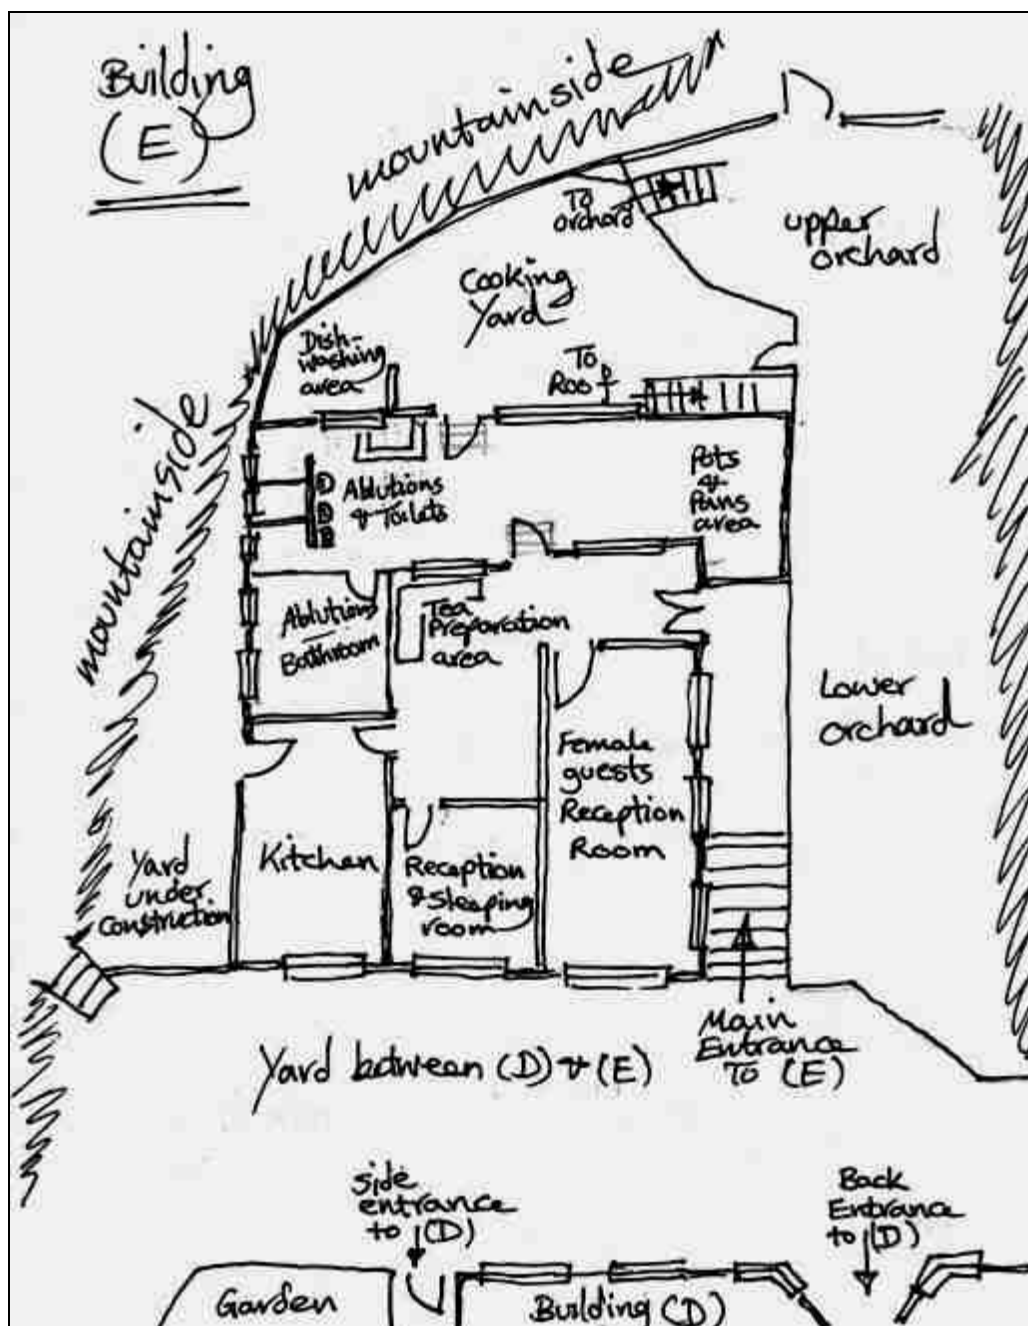 Building
(E)
mountainside
To
orchard
upper
orchard
Cooking
Yard
Dish-
washing
area
To
Roof
mountainside
Ablutions
& Toilets
Pots
&
Pans
area
Ablutions
Bathroom
Tea
Preparation
area
Lower
orchard
Female
guests
Reception
Room
Kitchen
Reception
& Sleeping
room
Yard
under
Construction
Main
Entrance
To (E)
Yard between (D) & (E)
side
entrance
to (D)
Back
Entrance
to (D)
Garden
Building (D)